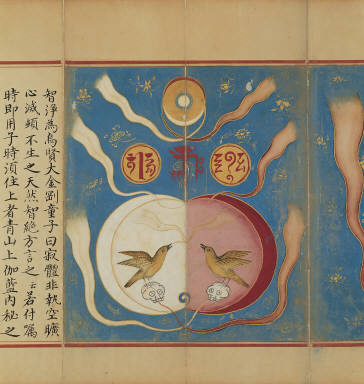 智淨為鳥賢大金剛童子曰寂體非執空曠
心滅頻不生之天然智絶方言之云若付囑
時即用子時須住上者青山上伽藍内秘之